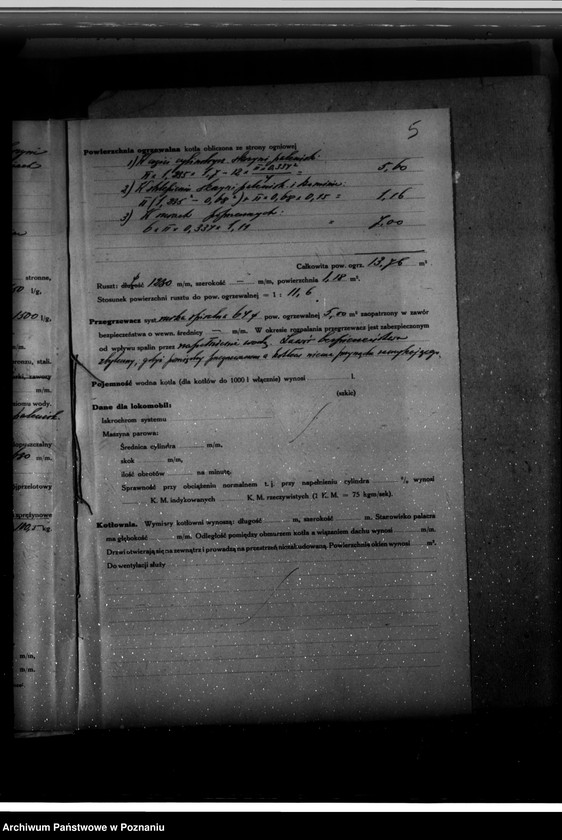 5
Powierzchnia ogrzewalna kotła obliczona ze strony ogniowej
1) W części cylindrycznej skrzyni paleniska:
π × 1,285 × 1,7 – 12 × π × 0,337² / 4 = 5,60
2) W sklepieniu skrzyni palenisk. i kominie:
π (1,285² – 0,68²) + π × 0,68 × 0,15 = 1,16
3) W rurach
6 × π × 0,337 × 1,11 " 7.00
Całkowita pow. ogrz. 13,76 m²
Ruszt: długość 1280 m/m, szerokość — m/m, powierzchnia 1,18 m².
Stosunek powierzchni rusztu do pow. ogrzewalnej = 1 : 11,6.
Przegrzewacz syst. pow. ogrzewalnej 5,00 m² zaopatrzony w zawór
bezpieczeństwa o wewn. średnicy — m/m. W okresie rozpalania przegrzewacz jest zabezpieczonym
od wpływu spalin przez napełnienie wody. Zawór bezpieczeństwa
zbyteczny, gdyż pomiędzy przegrzewaczem a kotłem niema przyrządu zamykającego.
Pojemność wodna kotła (dla kotłów do 1000 l włącznie) wynosi l.
(szkic)
Dane dla lokomobil:
Iskrochron systemu
Maszyna parowa:
Średnica cylindra m/m,
skok m/m,
ilość obrotów na minutę.
Sprawność przy obciążeniu normalnem t. j. przy napełnieniu cylindra % wynosi
K. M. indykowanych K. M. rzeczywistych (1 K. M. = 75 kgm/sek).
Kotłownia. Wymiary kotłowni wynoszą: długość m, szerokość m. Stanowisko palacza
ma głębokość m/m. Odległość pomiędzy obmurzem kotła a wiązaniem dachu wynosi m/m.
Drzwi otwierają się na zewnątrz i prowadzą na przestrzeń niezabudowaną. Powierzchnia okien wynosi m².
Do wentylacji służy
stronne,
l/g,
1500 l/g,
m/m.
bronzu, stali.
m/m.
niomu wody.
dopuszczalny
m/m.
przelotowy
sprężynowe
kg.
m/m,
m/m.
Archiwum Państwowe w Poznaniu